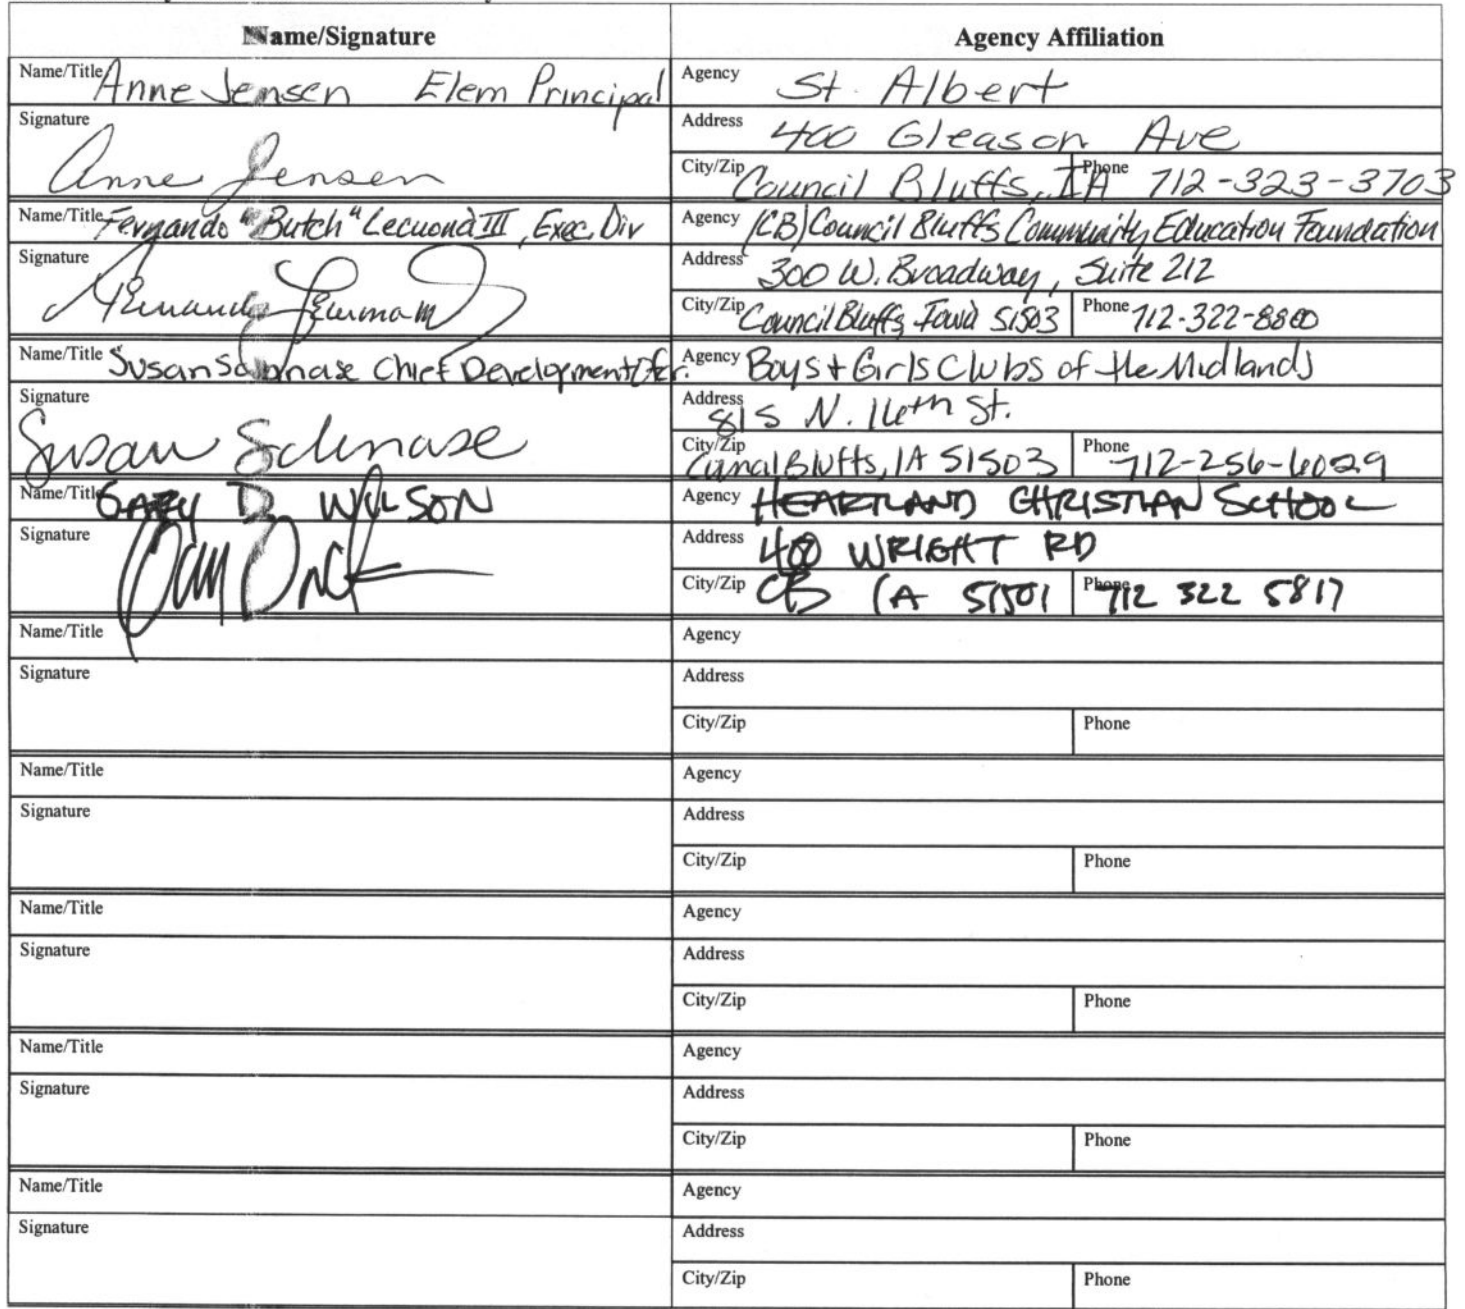 Name/Signature Agency Affiliation
Name/Title Anne Jensen Elem Principal Agency St. Albert
Signature Anne Jensen Address 400 Gleason Ave
City/Zip Council Bluffs, IA Phone 712-323-3703
Name/Title Fernando "Butch" Lecuona III, Exec. Div Agency (CB) Council Bluffs Community Education Foundation
Signature Address 300 W. Broadway, Suite 212
City/Zip Council Bluffs, Iowa 51503 Phone 712-322-8800
Name/Title Susan Schnase Chief Development Ofcr. Agency Boys + Girls Clubs of the Midlands
Signature Susan Schnase Address 815 N. 16th St.
City/Zip Council Bluffs, IA 51503 Phone 712-256-6029
Name/Title GARY D WILSON Agency HEARTLAND CHRISTIAN SCHOOL
Signature Address 400 WRIGHT RD
City/Zip CB IA 51501 Phone 712 322 5817
Name/Title Agency
Signature Address
City/Zip Phone
Name/Title Agency
Signature Address
City/Zip Phone
Name/Title Agency
Signature Address
City/Zip Phone
Name/Title Agency
Signature Address
City/Zip Phone
Name/Title Agency
Signature Address
City/Zip Phone